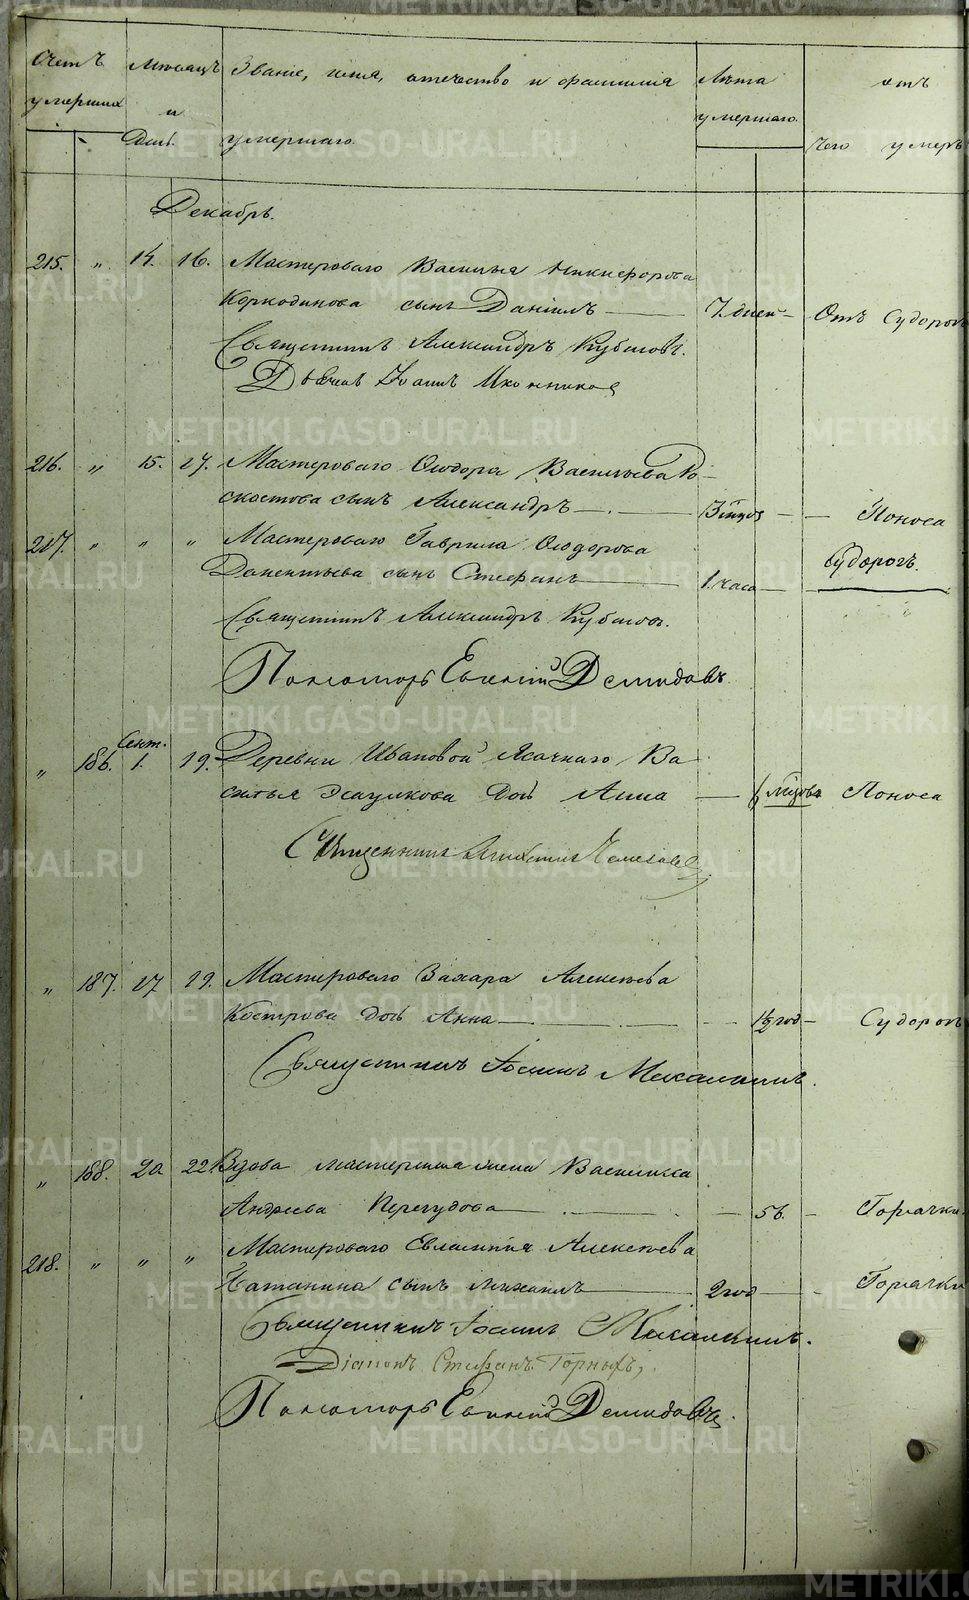 Счетъ Месяцъ Званіе, имя, отечество и фамилія Лѣта отъ
умершихъ и умершаго. чего умеръ
День. умершаго.
Декабрь.
215. " 14. 16. Мастероваго Василья Никифорова
Коркодинова сынъ Даніилъ 7 дней Отъ Судорогъ
Священникъ Александръ Кубасовъ.
Дьячокъ Іоаннъ Иконников
216. " 15. 17. Мастероваго Ѳеодора Васильева Ро-
скостова сынъ Александръ Поноса
217. " " " Мастероваго Гаврила Ѳеодорова
Дементьева сынъ Стефанъ 1. часа Судорогъ.
Священникъ Александръ Кубасовъ.
Пономарь Евгеній Демидовъ.
" 186. Сент. 1. 19. Деревни Ивановой Ясачнаго Ва
силья дочь Анна Поноса
Священникъ
" 187. 17 19. Мастероваго Захара Алексѣева
Кострова дочь Анна 1½ год Судорогъ
Священникъ Іоаннъ
" 188. 20 22. Вдова мастерская жена Василиса
Андреева Перегудова 56. Горячки.
218. " " " Мастероваго Евлампия Алексѣева
Катанина сынъ Михаилъ 2 год Горячки
Священникъ Іоаннъ
Діаконъ Стефанъ Горныхъ,
Пономарь Евгеній Демидовъ.
METRIKI.GASO-URAL.RU